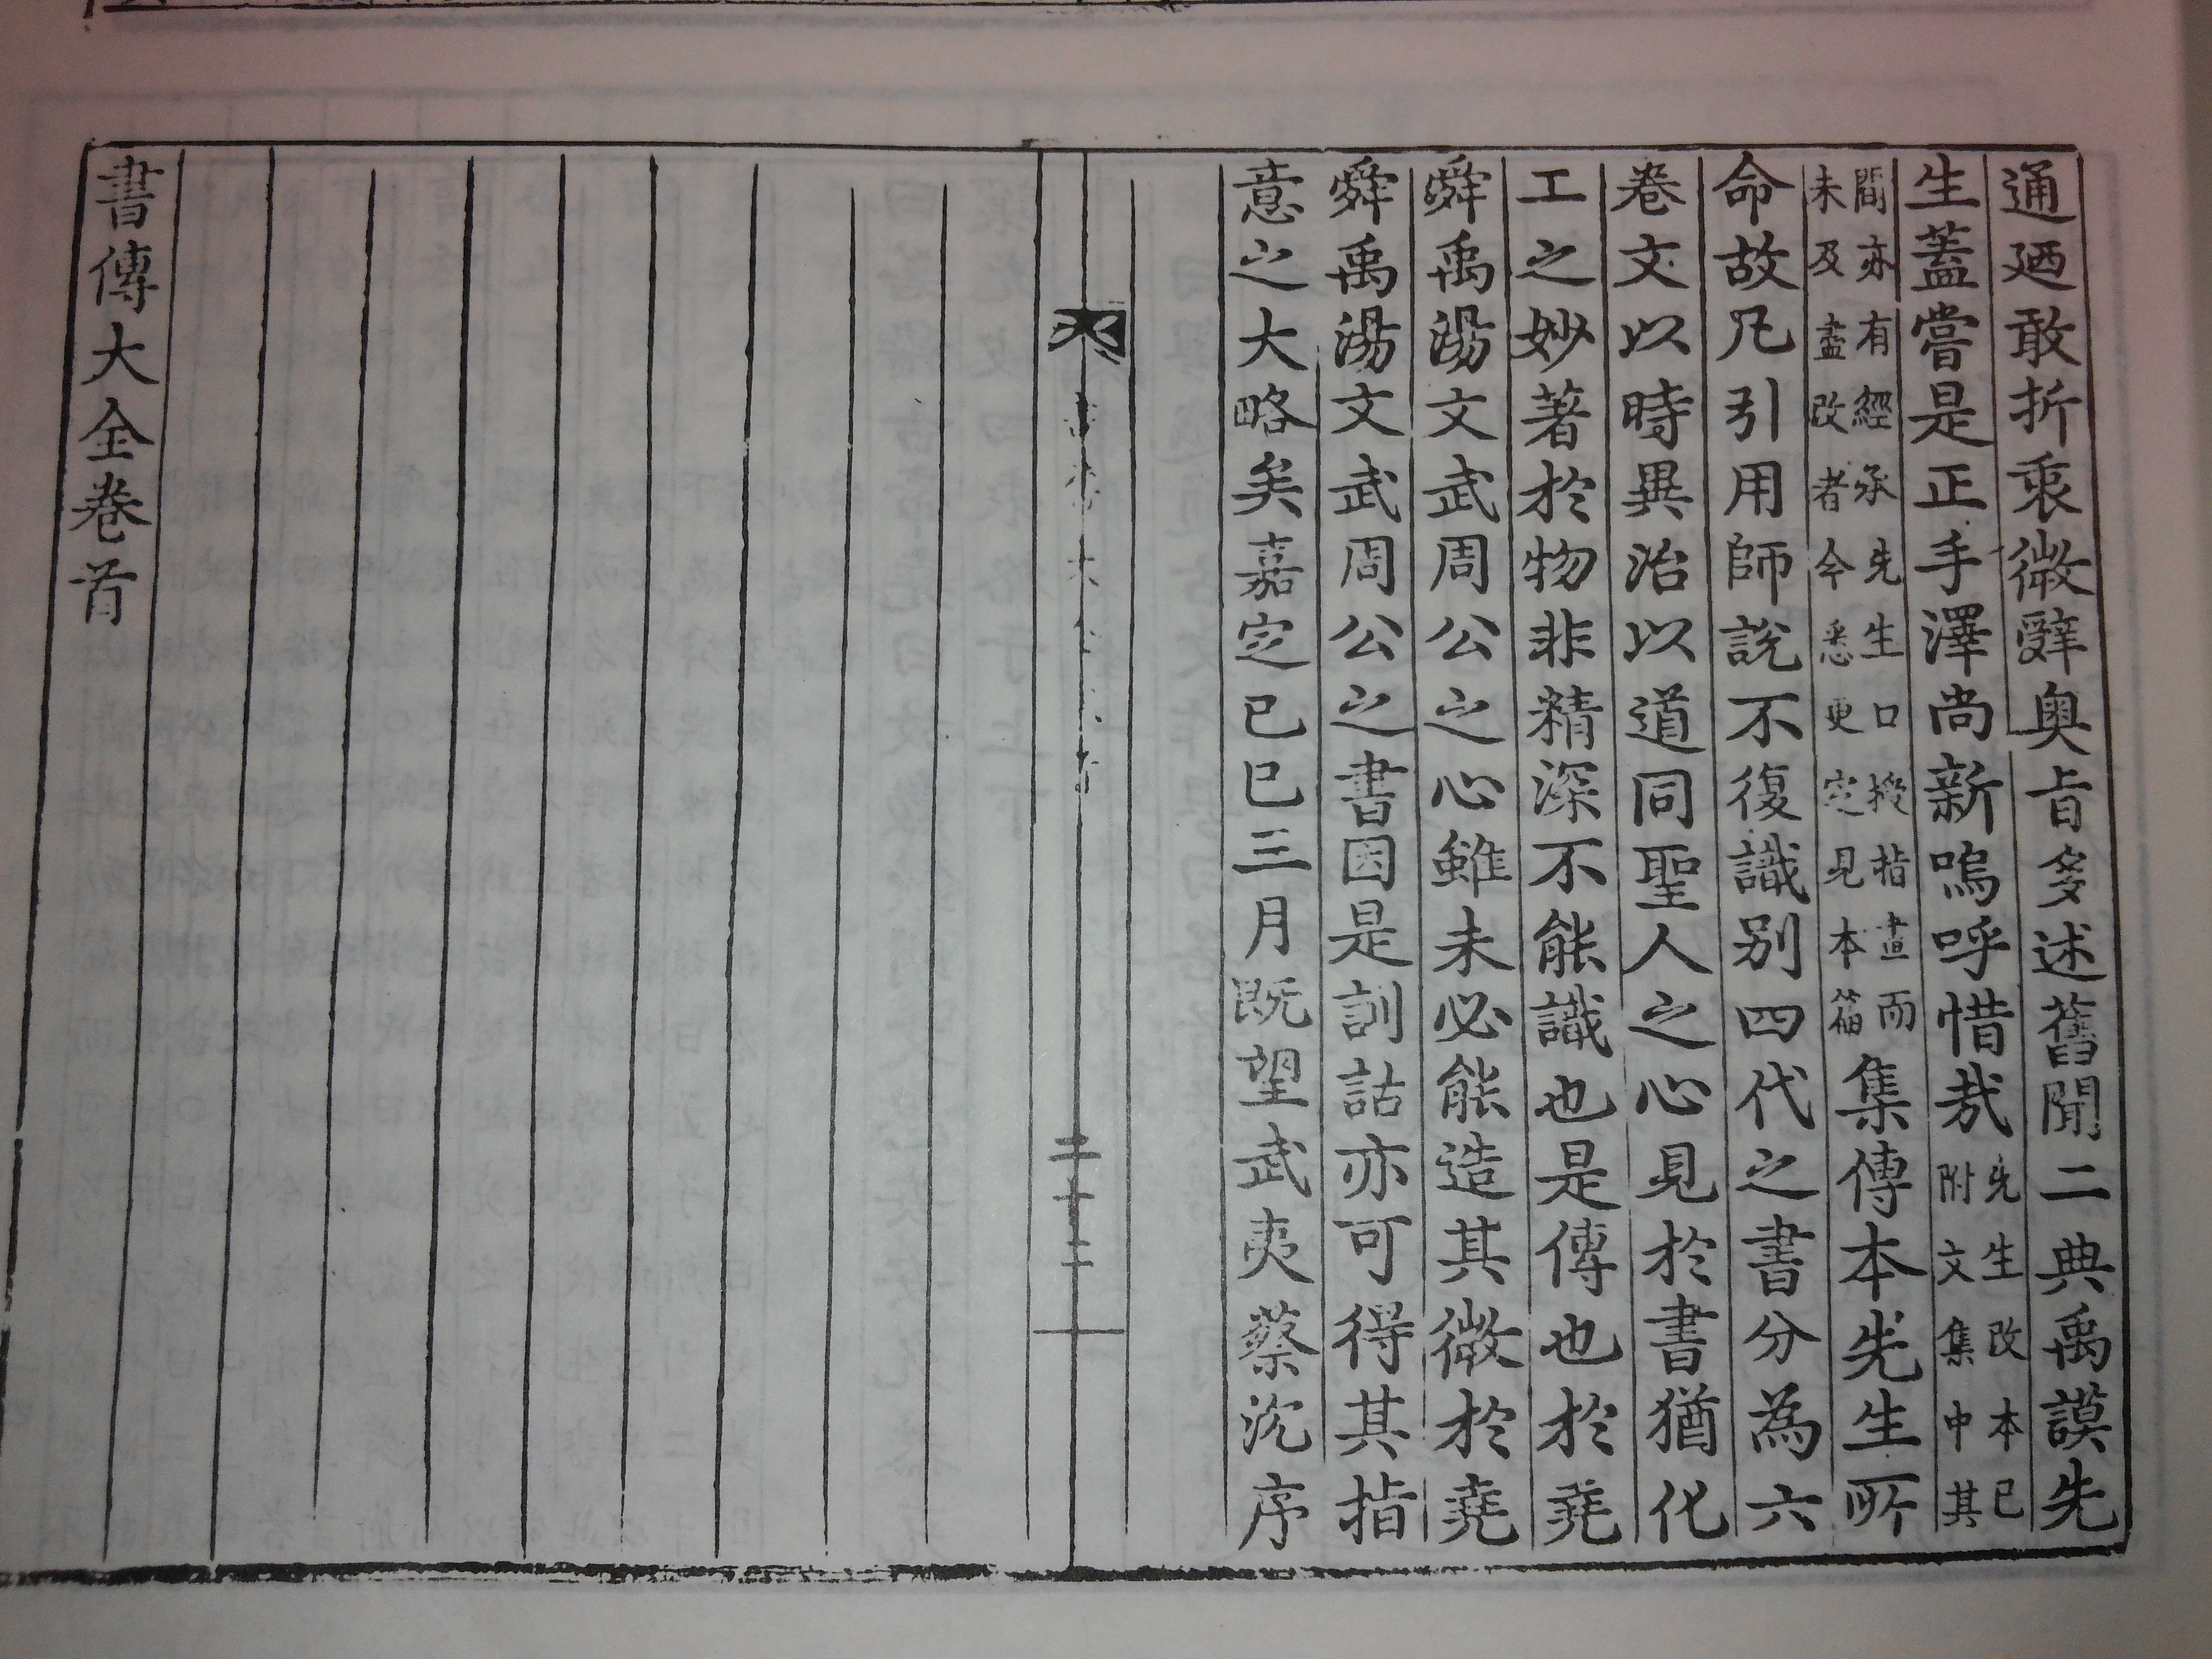 通廼敢折衷微辭奧旨多述舊聞二典禹謨先
生蓋嘗是正手澤尚新嗚呼惜哉先生改本已附文集中其
間亦有經承先生口授指畫而未及盡改者今悉更定見本篇集傳本先生所
命故凡引用師說不復識別四代之書分為六
卷文以時異治以道同聖人之心見於書猶化
工之妙著於物非精深不能識也是傳也於堯
舜禹湯文武周公之心雖未必能造其微於堯
舜禹湯文武周公之書因是訓詁亦可得其指
意之大略矣嘉定己巳三月既望武夷蔡沈序
二十二
書傳大全卷首